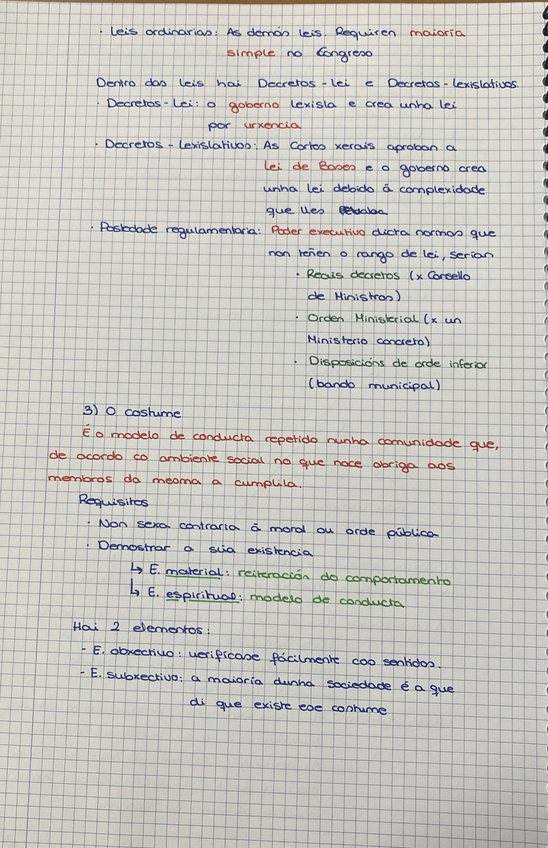 · Leis ordinarias: As demáis leis. Requiren maioría
simple no Congreso
Dentro das leis hai Decretos-lei e Decretos-lexislativos.
· Decretos-Lei: o goberno lexisla e crea unha lei
por urxencia
· Decretos-lexislativos: As Cortes xerais aproban a
lei de Bases e o goberno crea
unha lei debido á complexidade
que lles
· Postedade regulamentaria: Poder executivo dicta normas que
non teñen o rango de lei, serían
· Reais decretos (x Consello
de Ministros)
· Orden Ministerial (x un
Ministerio concreto)
· Disposicións de orde inferior
(bando municipal)
3) O costume
É o modelo de conducta repetido nunha comunidade que,
de acordo co ambiente social no que nace obriga aos
membros da mesma a cumplila.
Requisitos
· Non sexa contraria á moral ou orde pública
· Demostrar a súa existencia
↳ E. material: reiteración do comportamento
↳ E. espiritual: modelo de conducta
Hai 2 elementos:
- E. obxectivo: verifícase fácilmente cos sentidos.
- E. subxectivo: a maioría dunha sociedade é a que
di que existe ese contume